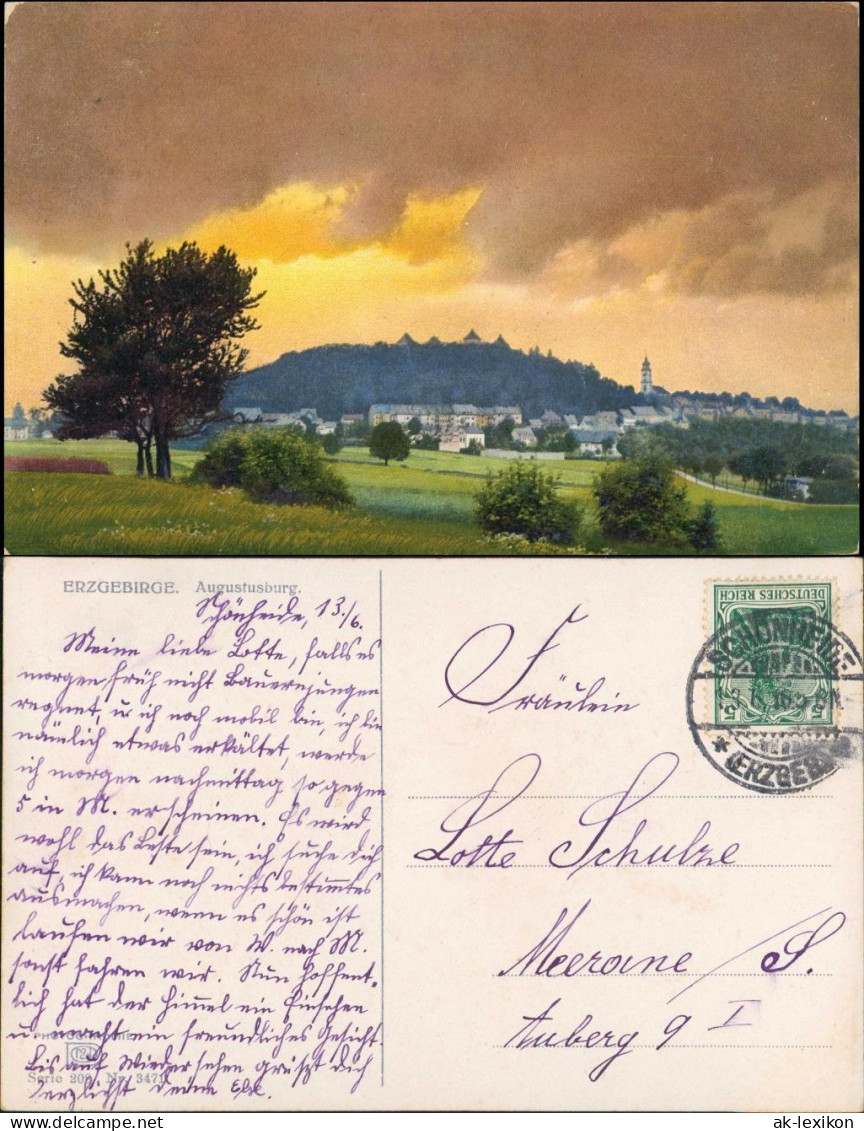 ERZGEBIRGE. Augustusburg.
Schönheide, 13./6.
Meine liebe Lotte, falls es
morgen früh nicht Bauernjungen
regnet, u. ich noch mobil bin, ich bin
nämlich etwas erkältet, werde
ich morgen nachmittag so gegen
5 in M. erscheinen. Es wird
wohl das Beste sein, ich suche dich
auf, ich kann noch nichts bestimmtes
ausmachen, wenn es schön ist
laufen wir von W. nach M.
sonst fahren wir. Nun hoffent-
lich hat der Himmel ein Einsehen
u. macht ein freundliches Gesicht.
Bis auf Wiedersehen grüsst dich
herzlichst deine Else.
Serie 209 Nr. 3471
DEUTSCHES REICH
5 5
SCHÖNHEIDE
* (ERZGEB.)
Fräulein
Lotte Schulze
Meerane / S.
Auberg 9 I
ak-lexikon.com